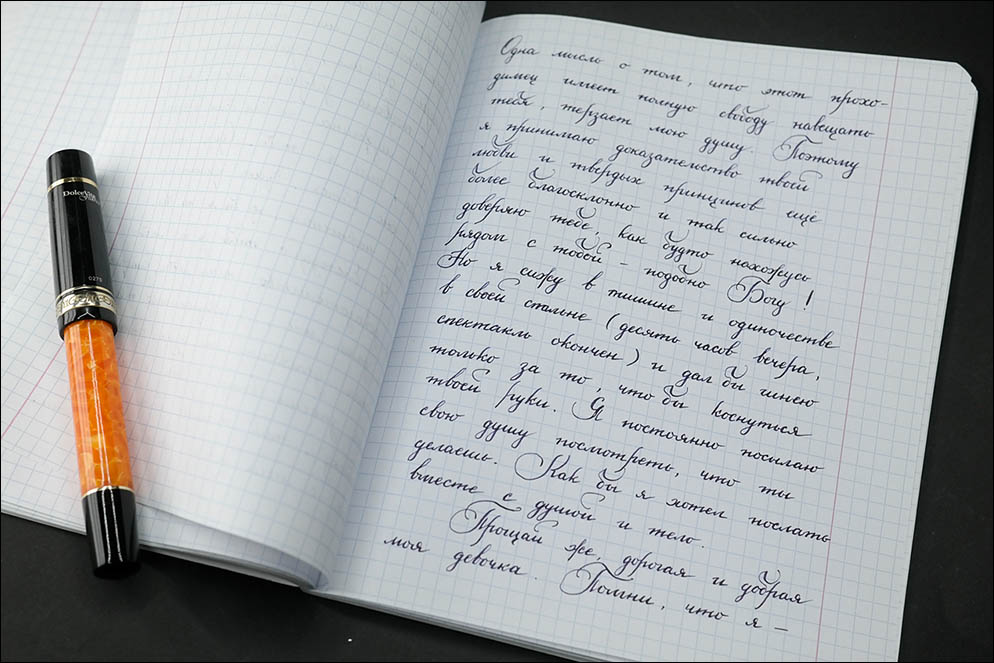 DolceVita
0273
Одна мысль о том, что этот прохо-
димец имеет полную свободу навещать
тебя, терзает мою душу. Поэтому
я принимаю доказательство твоей
любви и твердых принципов ещё
более благосклонно и так сильно
доверяю тебе, как будто нахожусь
рядом с тобой - подобно Богу!
Но я сижу в тишине и одиночестве
в своей спальне (десять часов вечера,
спектакль окончен) и дал бы гинею
только за то, что бы коснуться
твоей руки. Я постоянно посылаю
свою душу посмотреть, что ты
делаешь. Как бы я хотел послать
вместе с душой и тело.
Прощай же, дорогая и добрая
моя девочка. Помни, что я -